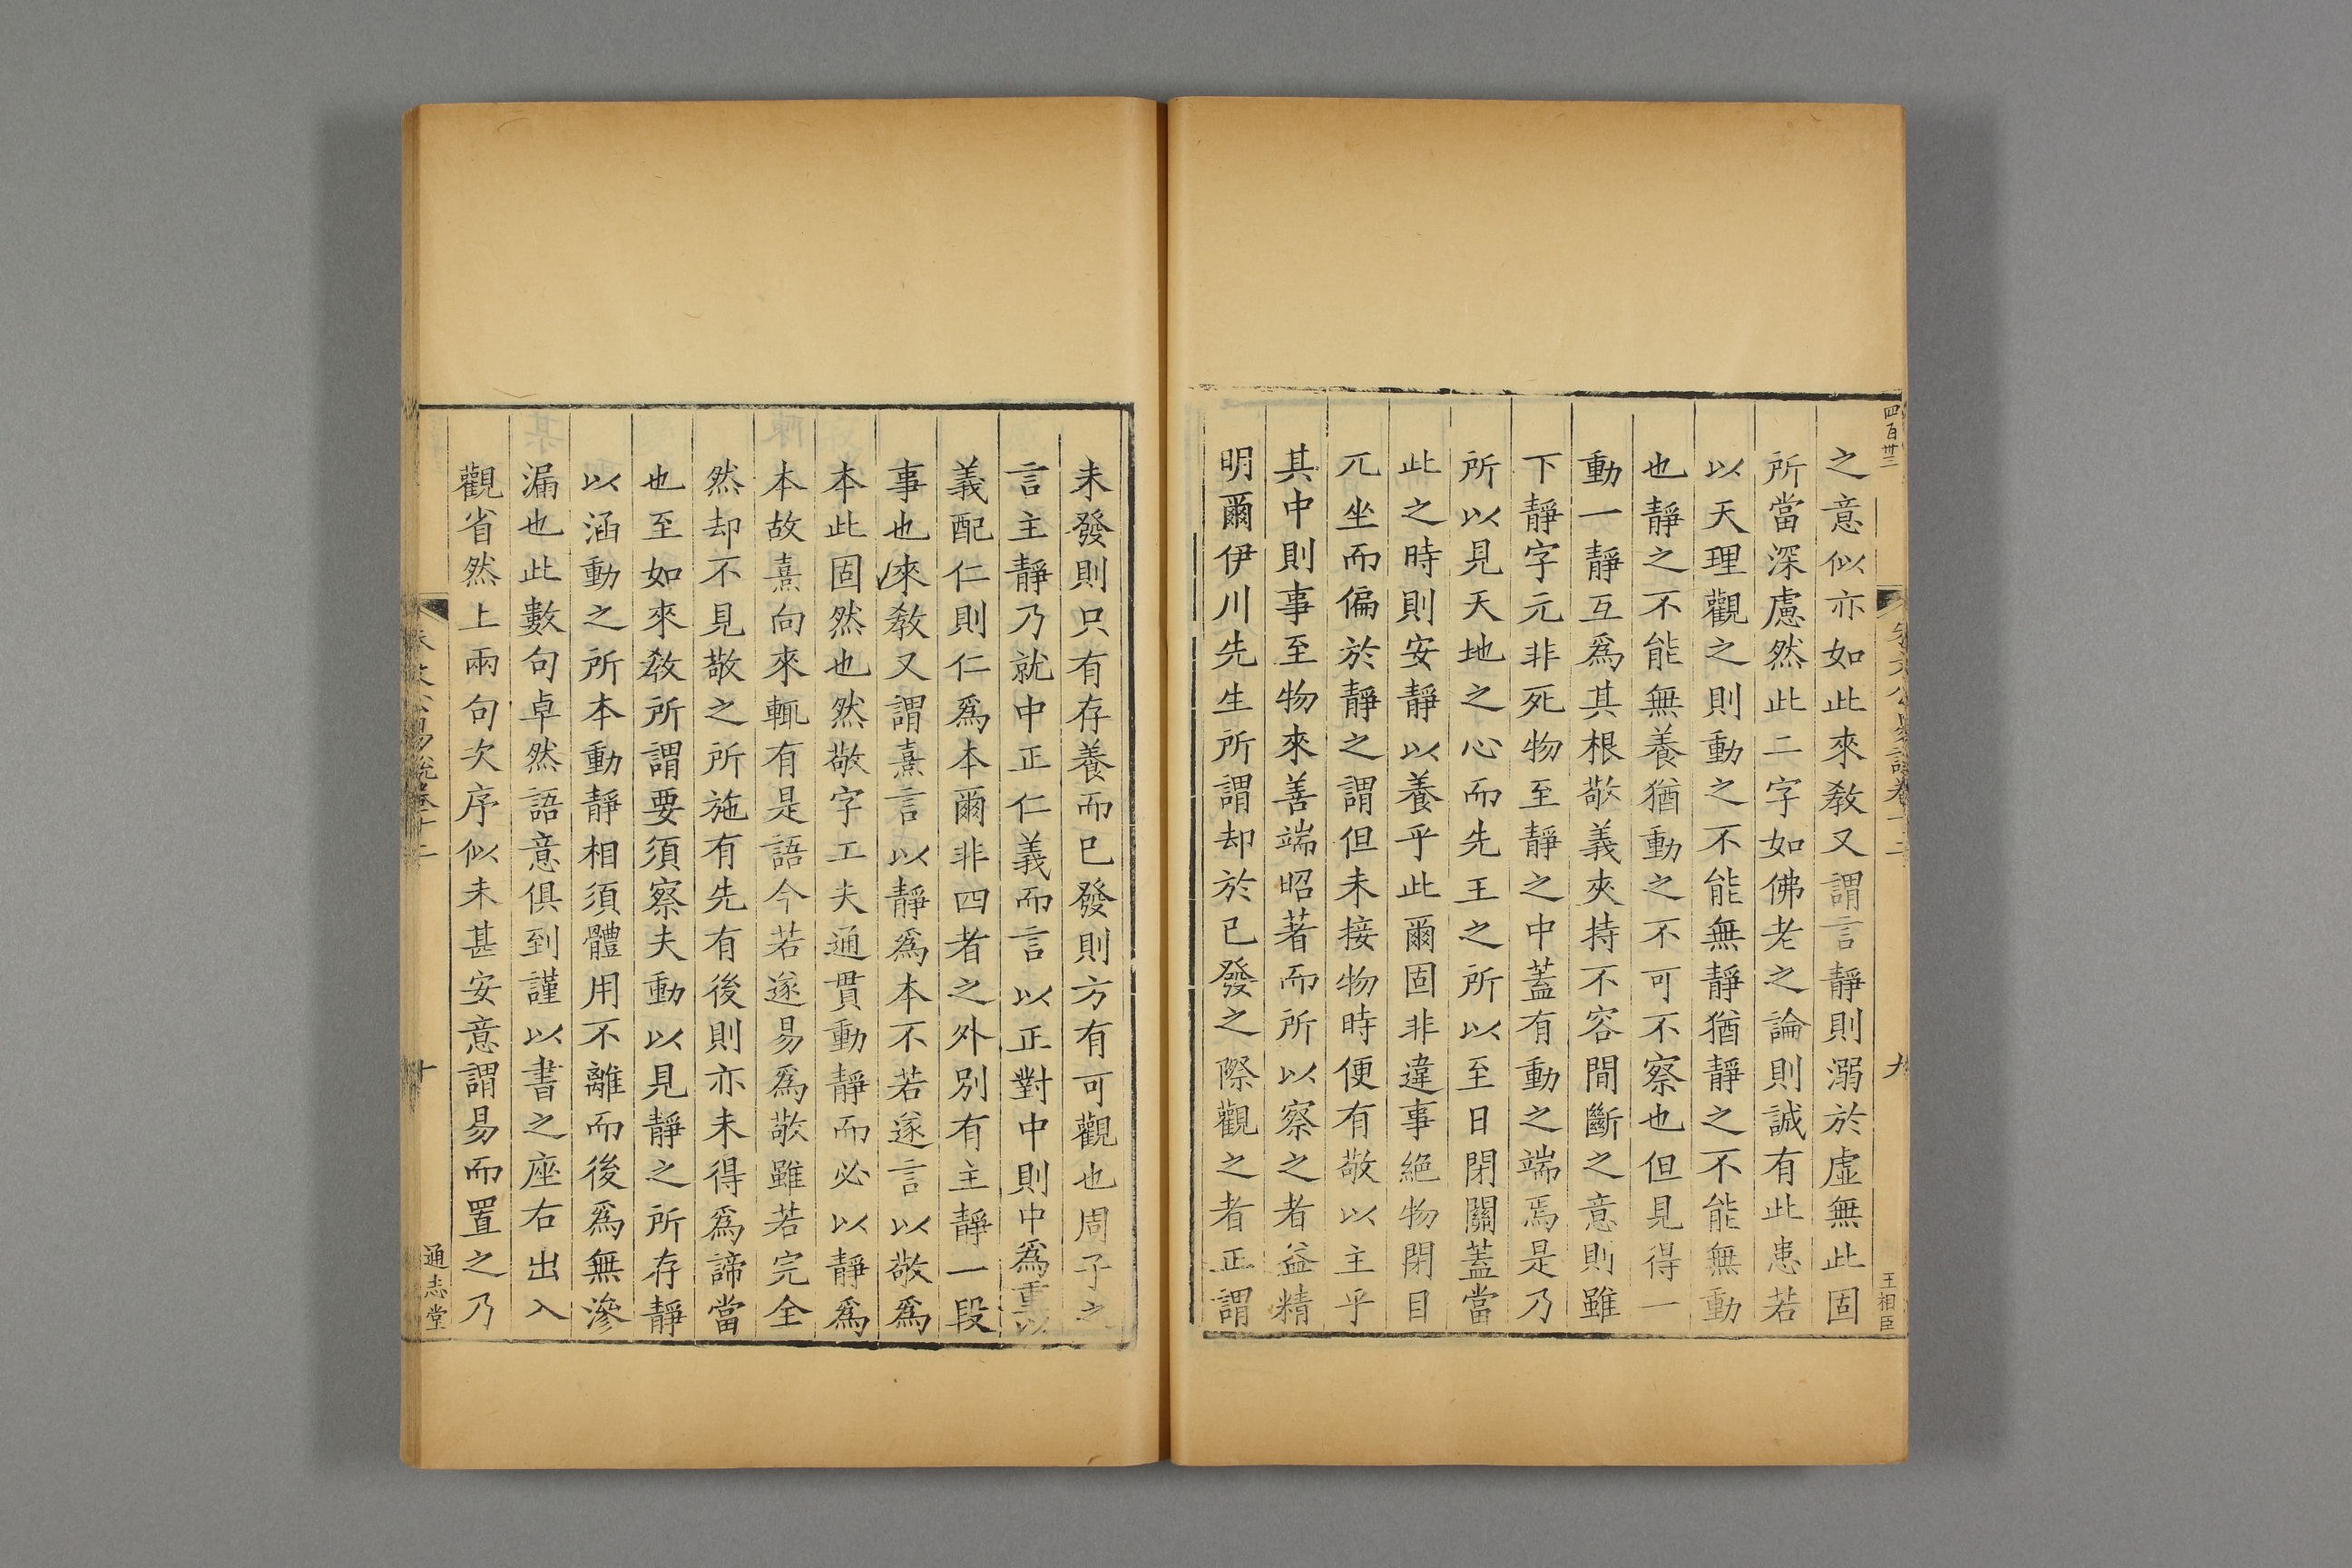 四百卅三
之意似亦如此來敎又謂言靜則溺於虛無此固
所當深慮然此二字如佛老之論則誠有此患若
以天理觀之則動之不能無靜猶靜之不能無動
也靜之不能無養猶動之不可不察也但見得一
動一靜互爲其根敬義夾持不容間斷之意則雖
下靜字元非死物至靜之中蓋有動之端焉是乃
所以見天地之心而先王之所以至日閉關蓋當
此之時則安靜以養乎此爾固非違事絕物閉目
兀坐而偏於靜之謂但未接物時便有敬以主乎
其中則事至物來善端昭著而所以察之者益精
明爾伊川先生所謂却於已發之際觀之者正謂
九
王相臣
未發則只有存養而已發則方有可觀也周子之
言主靜乃就中正仁義而言以正對中則中爲重以
義配仁則仁爲本爾非四者之外別有主靜一段
事也來敎又謂熹言以靜爲本不若遂言以敬爲
本此固然也然敬字工夫通貫動靜而必以靜爲
本故熹向來輒有是語今若遂易爲敬雖若完全
然却不見敬之所施有先有後則亦未得爲諦當
也至如來敎所謂要須察夫動以見靜之所存靜
以涵動之所本動靜相須體用不離而後爲無滲
漏也此數句卓然語意俱到謹以書之座右出入
觀省然上兩句次序似未甚安意謂易而置之乃
朱文公易說卷十二
十
通志堂